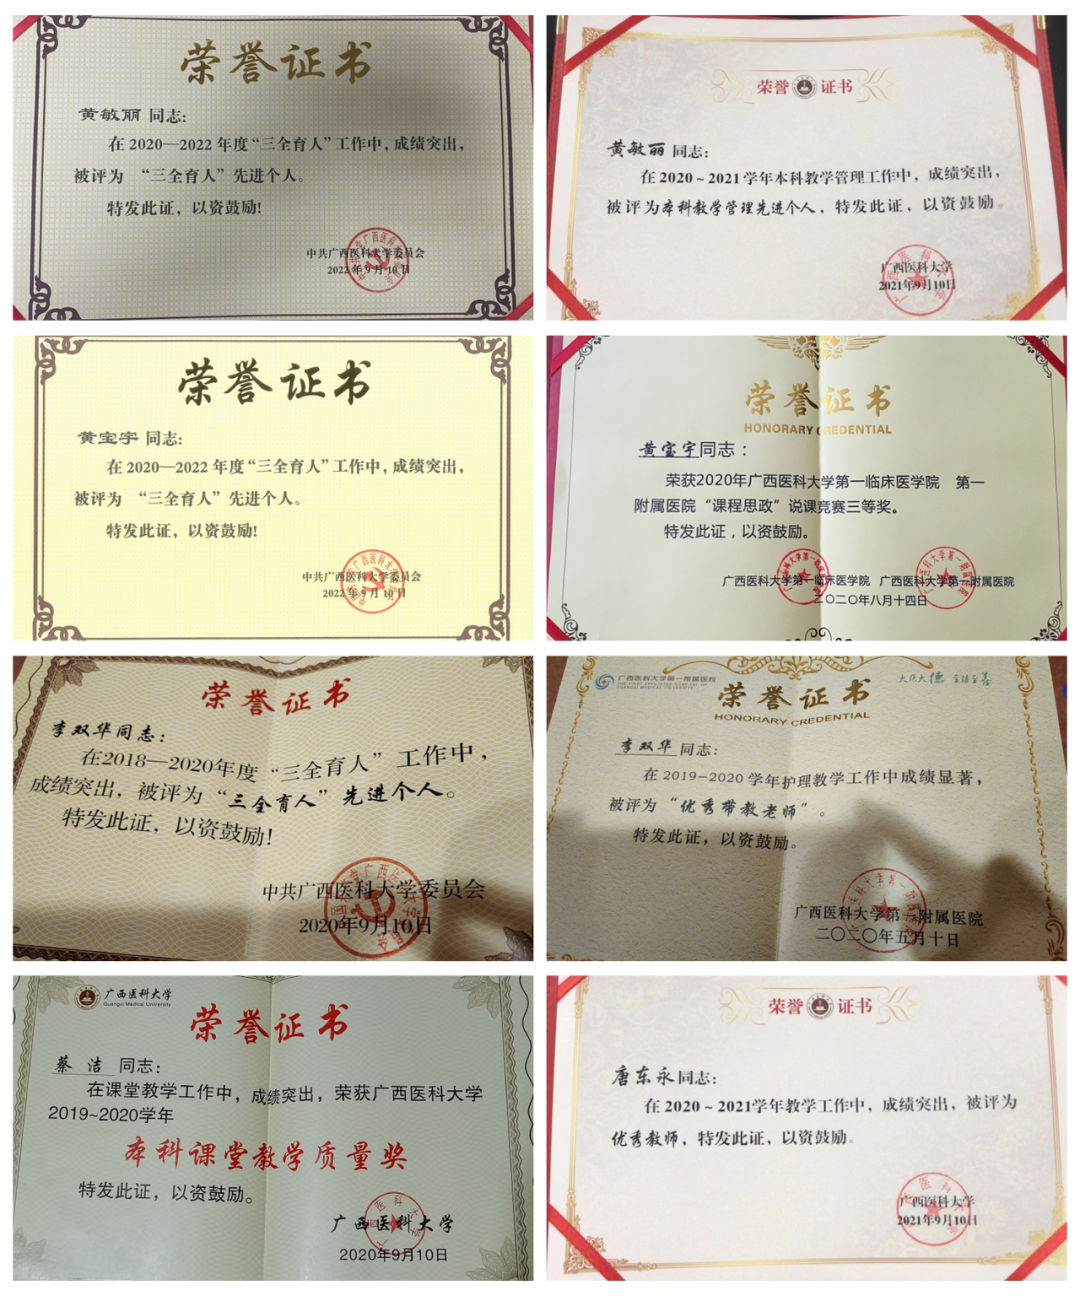 荣誉证书
黄敏丽 同志:
在 2020—2022 年度“三全育人”工作中，成绩突出，
被评为 “三全育人”先进个人。
特发此证，以资鼓励!
中共广西医科大学委员会
2022 年 9 月 10 日
荣誉 证书
黄敏丽 同志:
在 2020 ~ 2021 学年本科教学管理工作中，成绩突出，
被评为本科教学管理先进个人，特发此证，以资鼓励。
广西医科大学
2021年9月10日
荣誉证书
黄宝宇 同志:
在 2020—2022 年度“三全育人”工作中，成绩突出，
被评为 “三全育人”先进个人。
特发此证，以资鼓励!
中共广西医科大学委员会
2022 年 9 月 10 日
荣誉证书
HONORARY CREDENTIAL
黄宝宇同志：
荣获2020年广西医科大学第一临床医学院 第一
附属医院“课程思政”说课竞赛三等奖。
特发此证，以资鼓励。
广西医科大学第一临床医学院 广西医科大学第一附属医院
二〇二〇年八月十四日
荣誉证书
李双华同志：
在2018—2020年度“三全育人”工作中，
成绩突出，被评为“三全育人”先进个人。
特发此证，以资鼓励!
中共广西医科大学委员会
2020年9月10日
广西医科大学第一附属医院
THE FIRST AFFILIATED HOSPITAL OF
GUANGXI MEDICAL UNIVERSITY
大医大德 至臻至善
荣誉证书
HONORARY CREDENTIAL
李双华 同志：
在 2019-2020 学年护理教学工作中成绩显著，
被评为“优秀带教老师”。
特发此证，以资鼓励。
广西医科大学第一附属医院
二〇二〇年五月十日
广西医科大学
Guangxi Medical University
荣誉证书
蔡 洁 同志：
在课堂教学工作中，成绩突出，荣获广西医科大学
2019~2020学年
本科课堂教学质量奖
特发此证，以资鼓励。
广西医科大学
2020年9月10日
荣誉 证书
唐东永同志：
在 2020 ~ 2021学年教学工作中，成绩突出，被评为
优秀教师，特发此证，以资鼓励。
广西医科大学
2021年9月10日